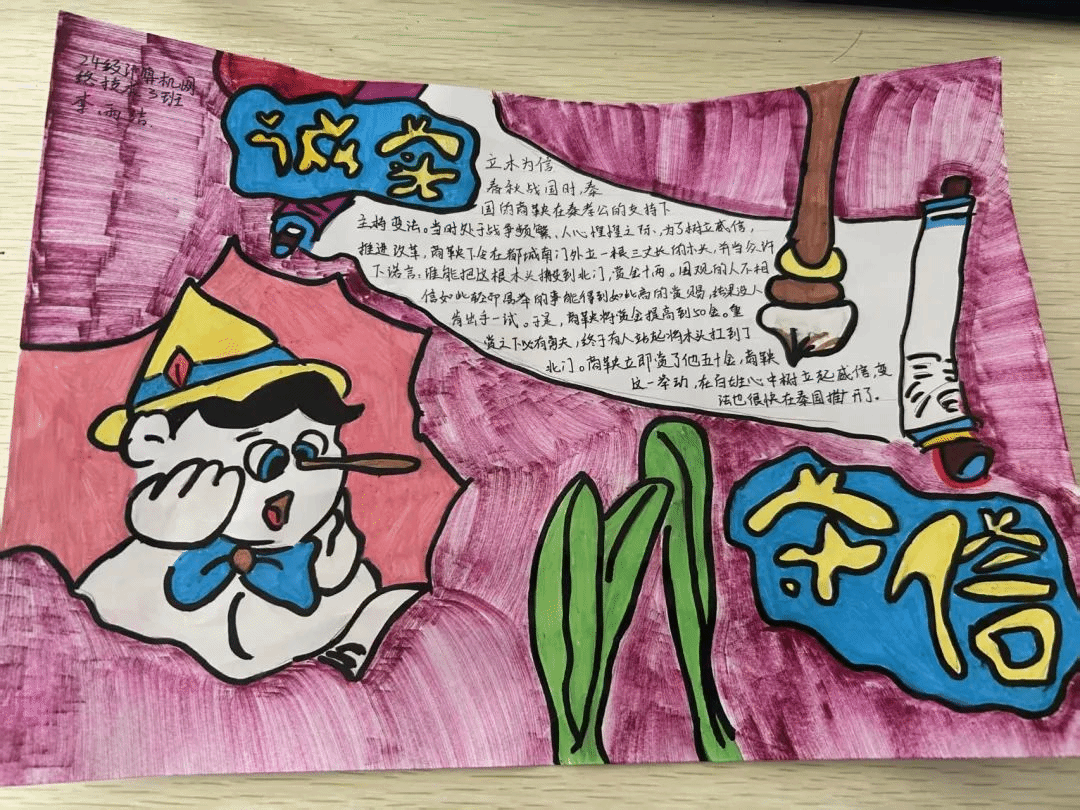 24级计算机网
络技术3班
李雨洁
诚实
立木为信
春秋战国时,秦
国的商鞅在秦孝公的支持下
主持变法。当时处于战争频繁、人心惶惶之际,为了树立威信,
推进改革,商鞅下令在都城南门外立一根三丈长的木头,并当众许
下诺言:谁能把这根木头搬到北门,赏金十两。围观的人不相
信如此轻而易举的事能得到如此高的赏赐,结果没人
肯出手一试。于是,商鞅将赏金提高到50金。重
赏之下必有勇夫,终于有人站起将木头扛到了
北门。商鞅立即赏了他五十金,商鞅
这一举动,在百姓心中树立起威信,变
法也很快在秦国推广开了。
守信